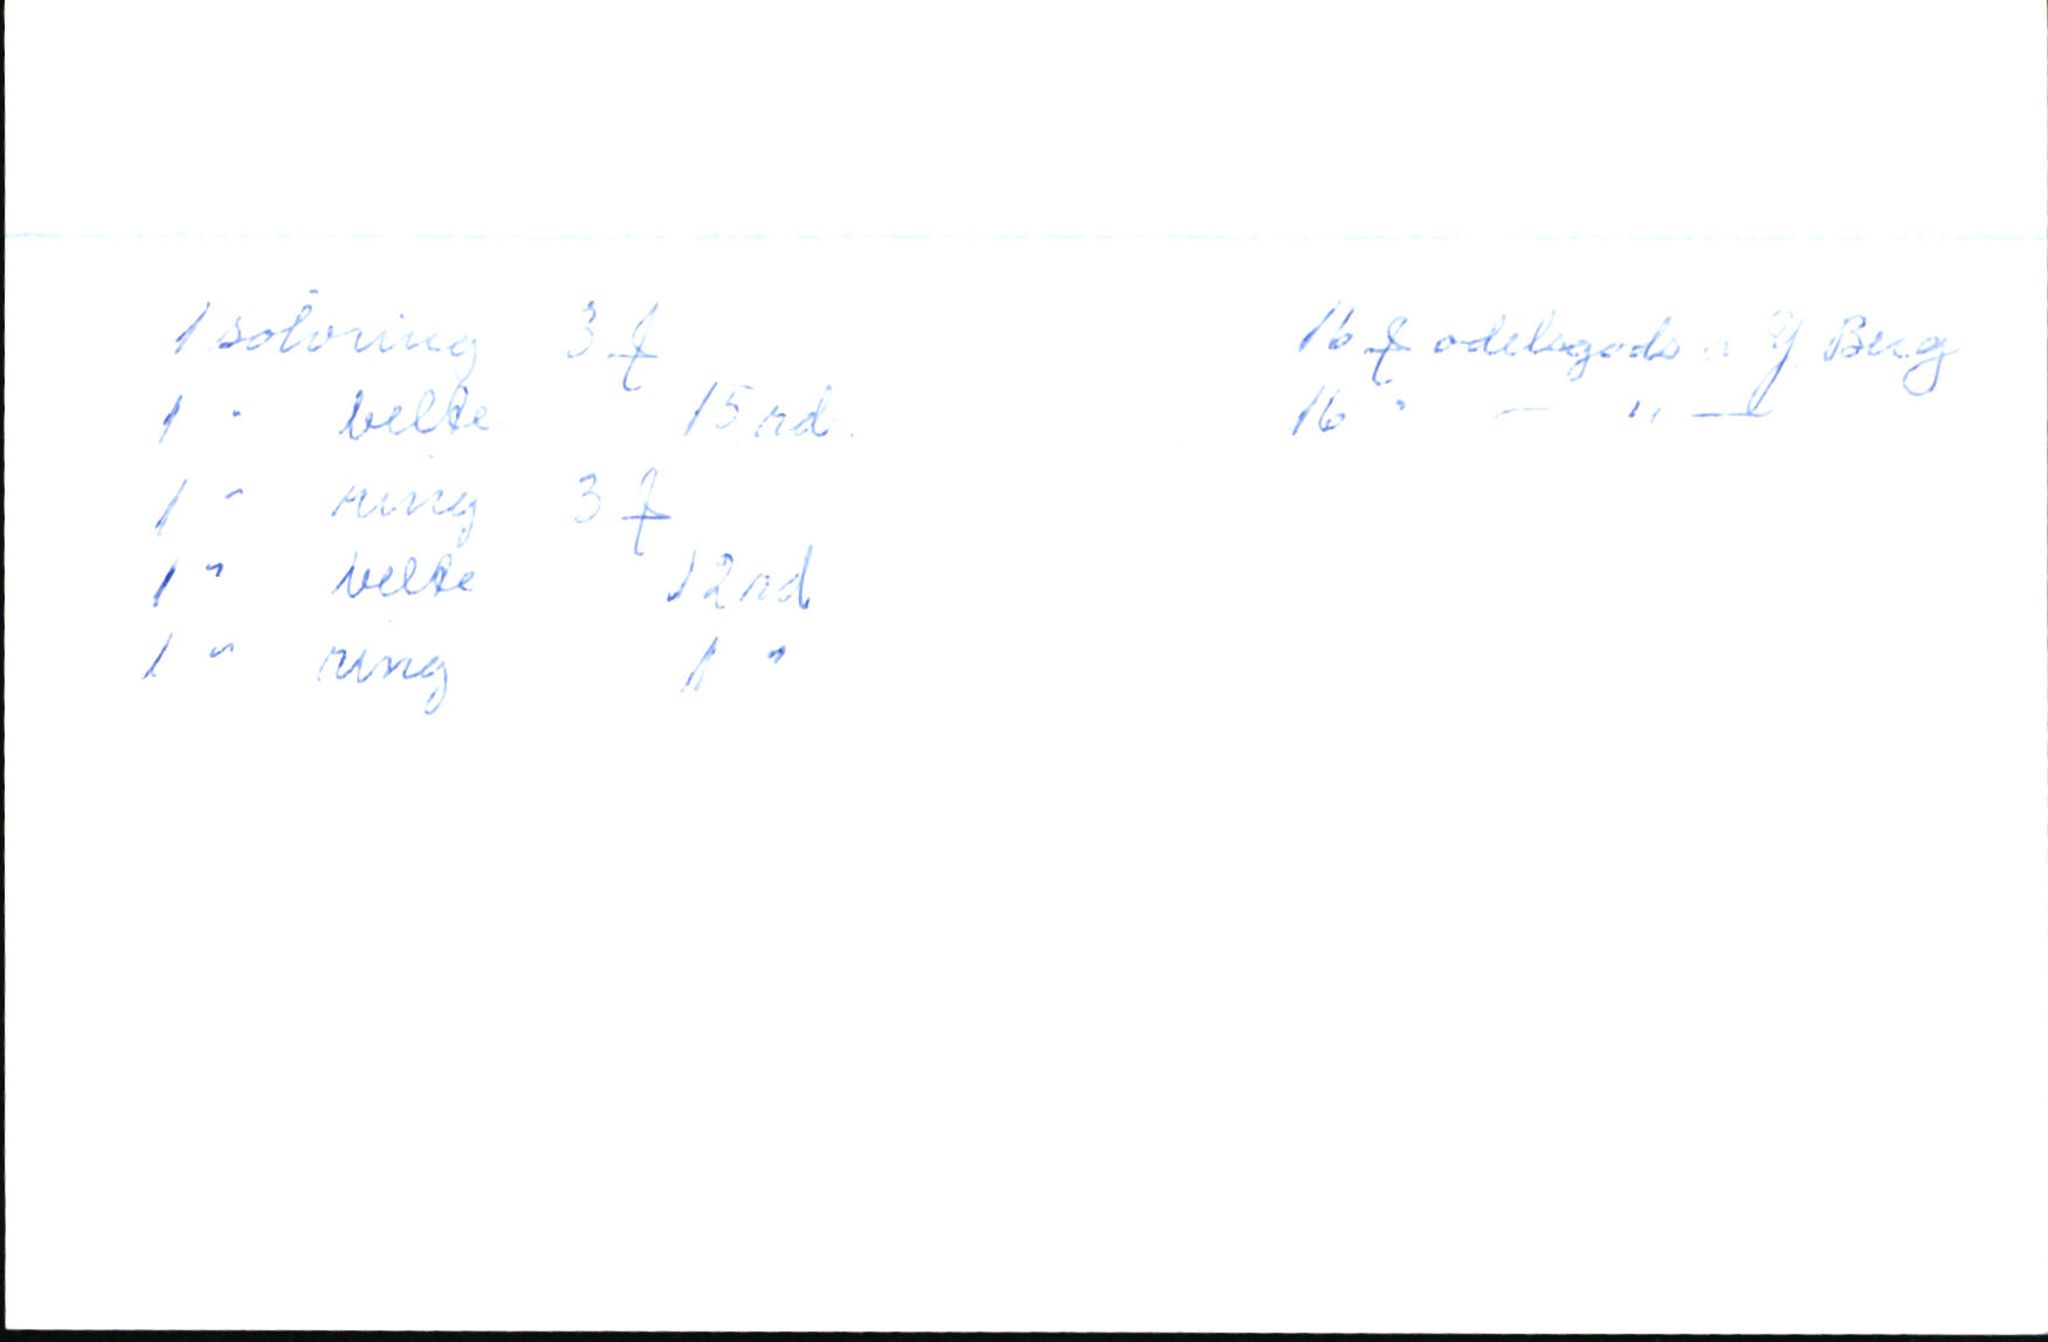 1 sølvring 3 ₰
1 " belte 15 rd.
1 " ring 3 ₰
1 " belte 12 rd
1 " ring 1 "
16 ₰ odelsgods i Y. Berg
16 " — " —